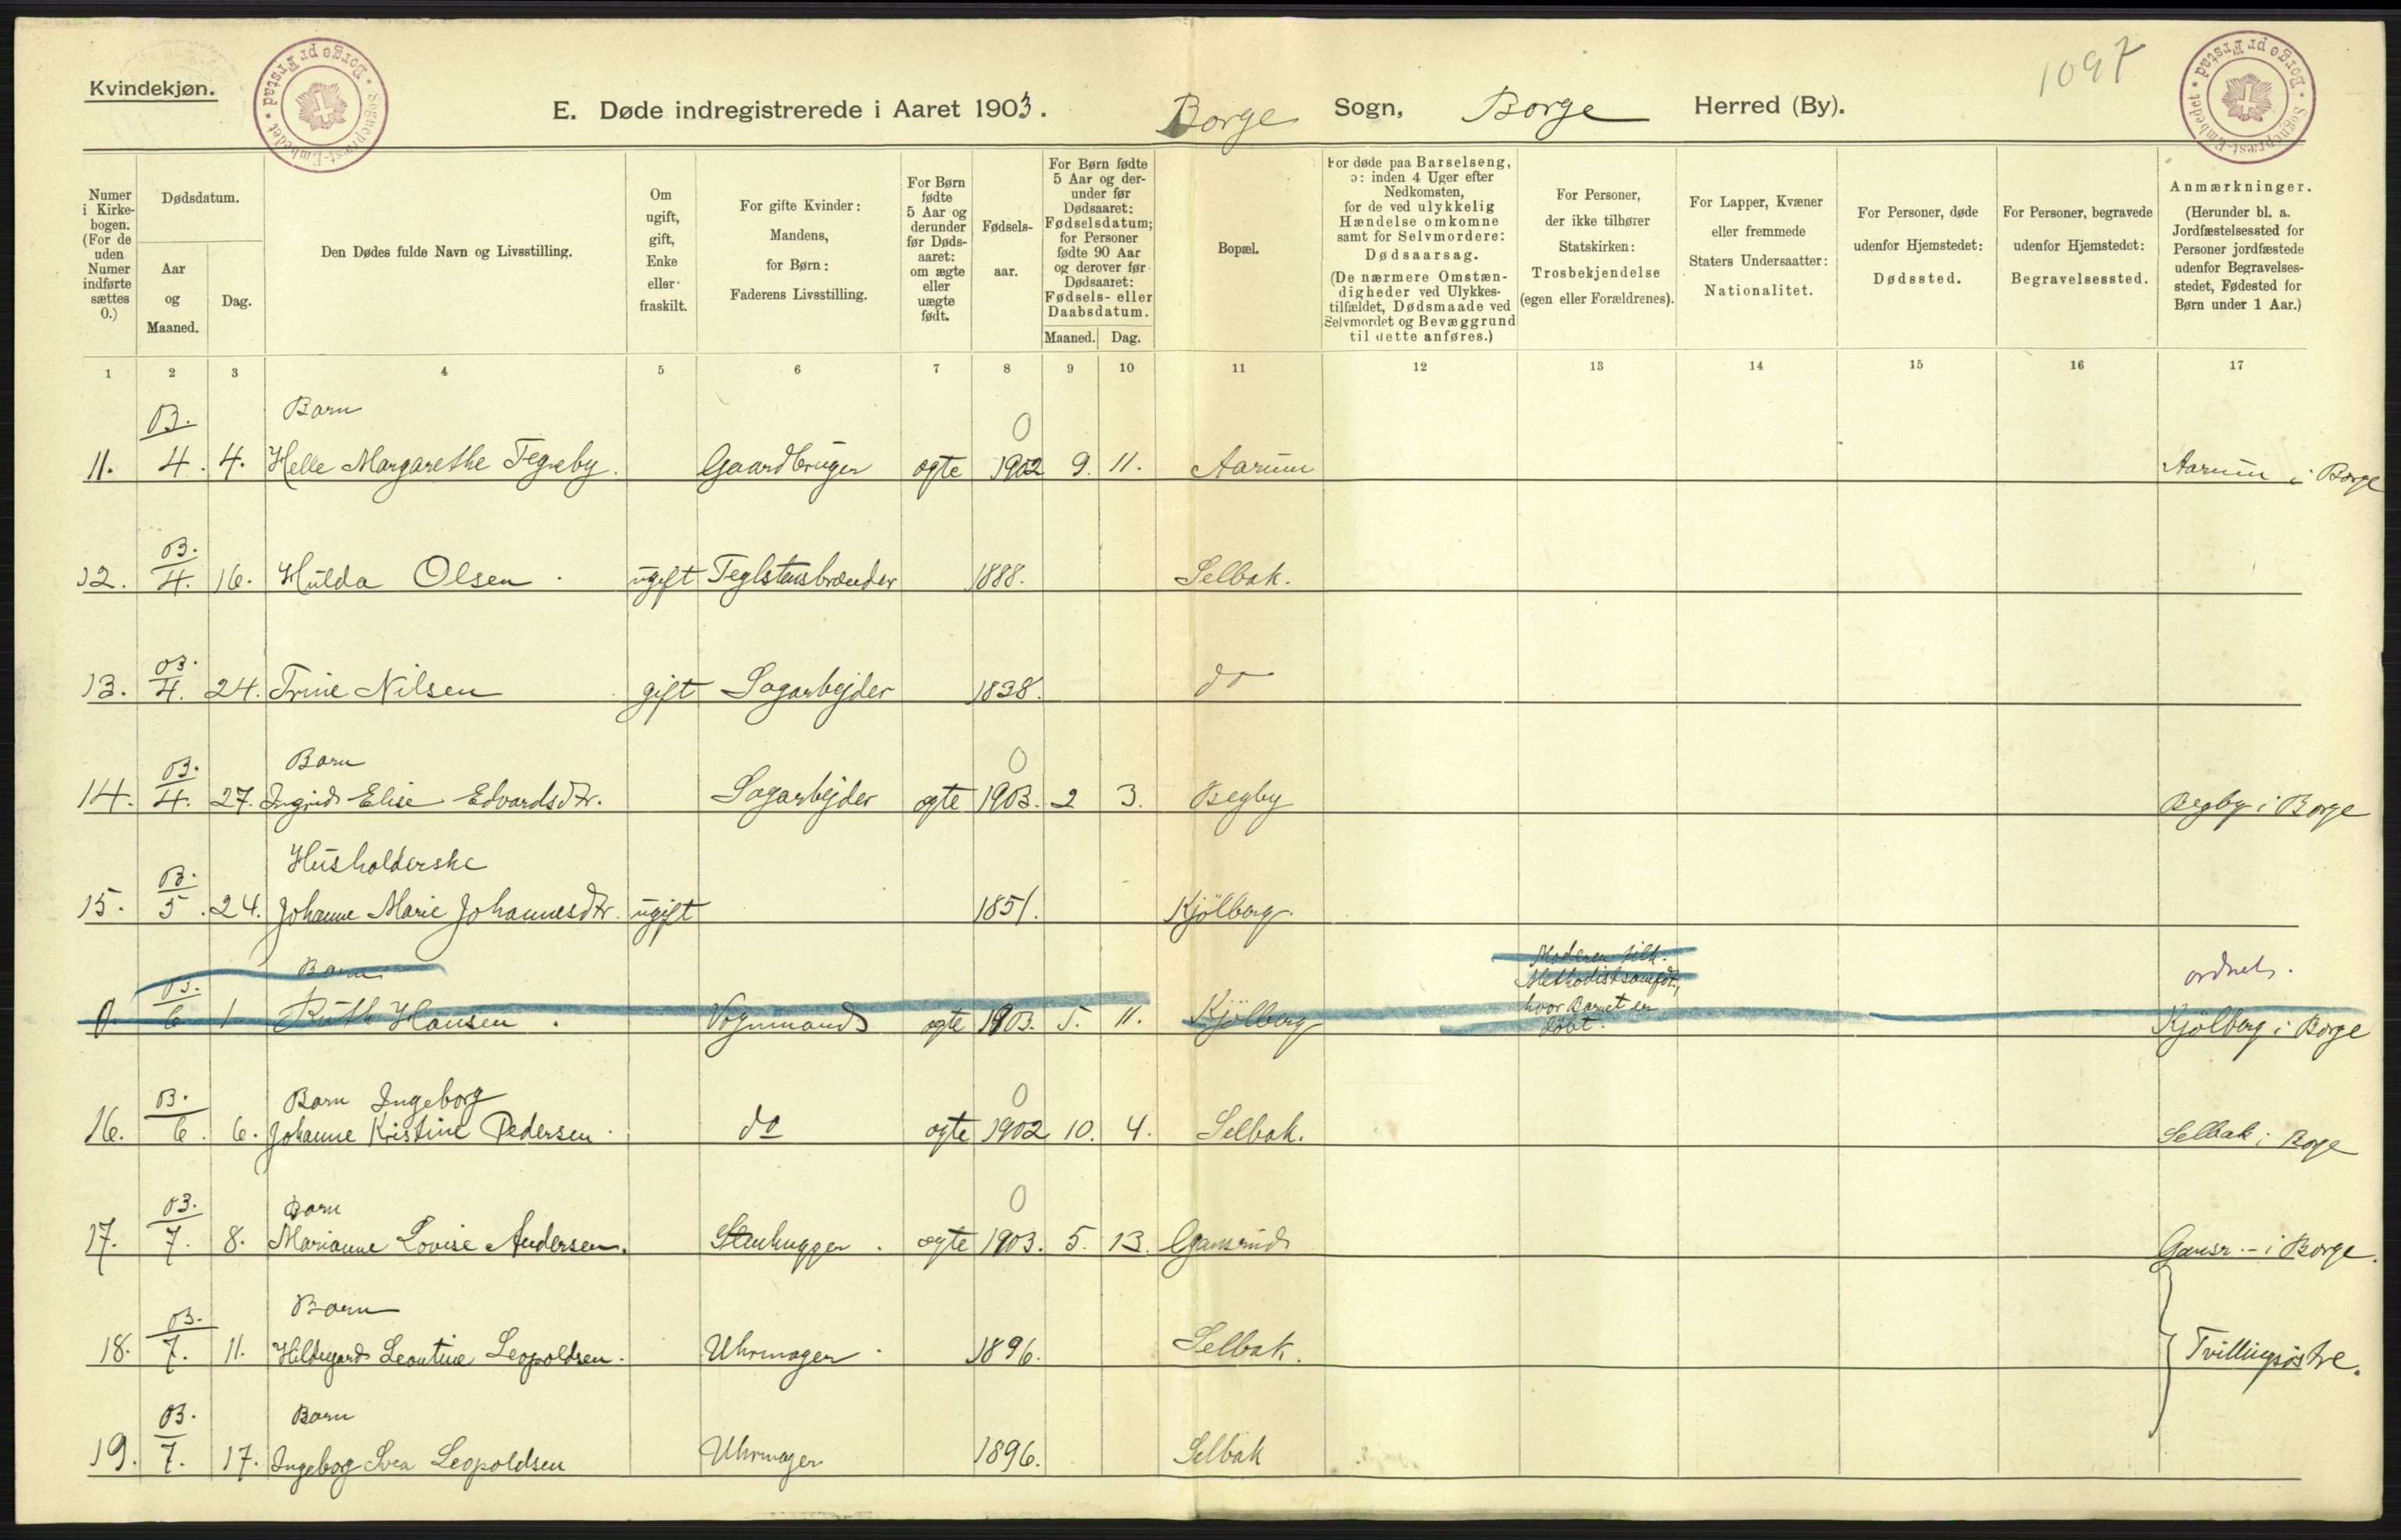 Kvindekjøn.
1097
E. Døde indregistrerede i Aaret 1903. Borge Sogn, Borge Herred (By).
Numer i Kirkebogen. (For de uden Numer indførte sættes 0.)
Dødsdatum.
Aar og Maaned.
Dag.
Den Dødes fulde Navn og Livsstilling.
Om ugift, gift, Enke eller fraskilt.
For gifte Kvinder: Mandens, for Børn: Faderens Livsstilling.
For Børn fødte 5 Aar og derunder før Dødsaaret: om ægte eller uægte født.
Fødselsaar.
For Børn fødte 5 Aar og derunder før Dødsaaret: Fødselsdatum; for Personer fødte 90 Aar og derover før Dødsaaret: Fødsels- eller Daabsdatum.
Maaned. Dag.
Bopæl.
For døde paa Barselseng, ɔ: inden 4 Uger efter Nedkomsten, for de ved ulykkelig Hændelse omkomne samt for Selvmordere: Dødsaarsag. (De nærmere Omstændigheder ved Ulykkestilfældet, Dødsmaade ved Selvmordet og Bevæggrund til dette anføres.)
For Personer, der ikke tilhører Statskirken: Trosbekjendelse (egen eller Forældrenes).
For Lapper, Kvæner eller fremmede Staters Undersaatter: Nationalitet.
For Personer, døde udenfor Hjemstedet: Dødssted.
For Personer, begravede udenfor Hjemstedet: Begravelsessted.
Anmærkninger. (Herunder bl. a. Jordfæstelsessted for Personer jordfæstede udenfor Begravelsesstedet, Fødested for Børn under 1 Aar.)
1 2 3 4 5 6 7 8 9 10 11 12 13 14 15 16 17
03. Barn 0
11. 4. 4. Helle Margarethe Tegneby. Gaardbruger ægte 1902 9. 11. Aarum Aarum i Borge
03.
12. 4. 16. Hulda Olsen. ugift Teglstensbrænder 1888. Selbak.
03.
13. 4. 24. Trine Nilsen gift Sagarbejder 1838. do
03. Barn 0
14. 4. 27. Ingrid Elise Edvardsdtr. Sagarbejder ægte 1903. 2 3. Begby Begby i Borge
03. Husholderske
15. 5. 24. Johanne Marie Johannesdtr. ugift 1851. Kjølberg.
03. Barn Moderen tilh. Methodistsamfdt., hvor Barnet er døbt. ordnet.
0 6 1 Ruth Hansen. Vognmand ægte 1903. 5. 11. Kjølberg Kjølberg i Borge
03. Barn Ingeborg 0
16. 6. 6. Johanne Kristine Pedersen. do ægte 1902 10. 4. Selbak. Selbak i Borge
03. Barn 0
17. 7. 8. Marianne Lovise Andersen. Stenhugger. ægte 1903. 5. 13. Gansrud Gansr.- i Borge.
03. Barn
18. 7. 11. Hildegard Leontine Leopoldsen. Uhrmager. 1896. Selbak. Tvillingsøstre.
03. Barn
19. 7. 17. Ingebog Svea Leopoldsen Uhrmager 1896. Selbak